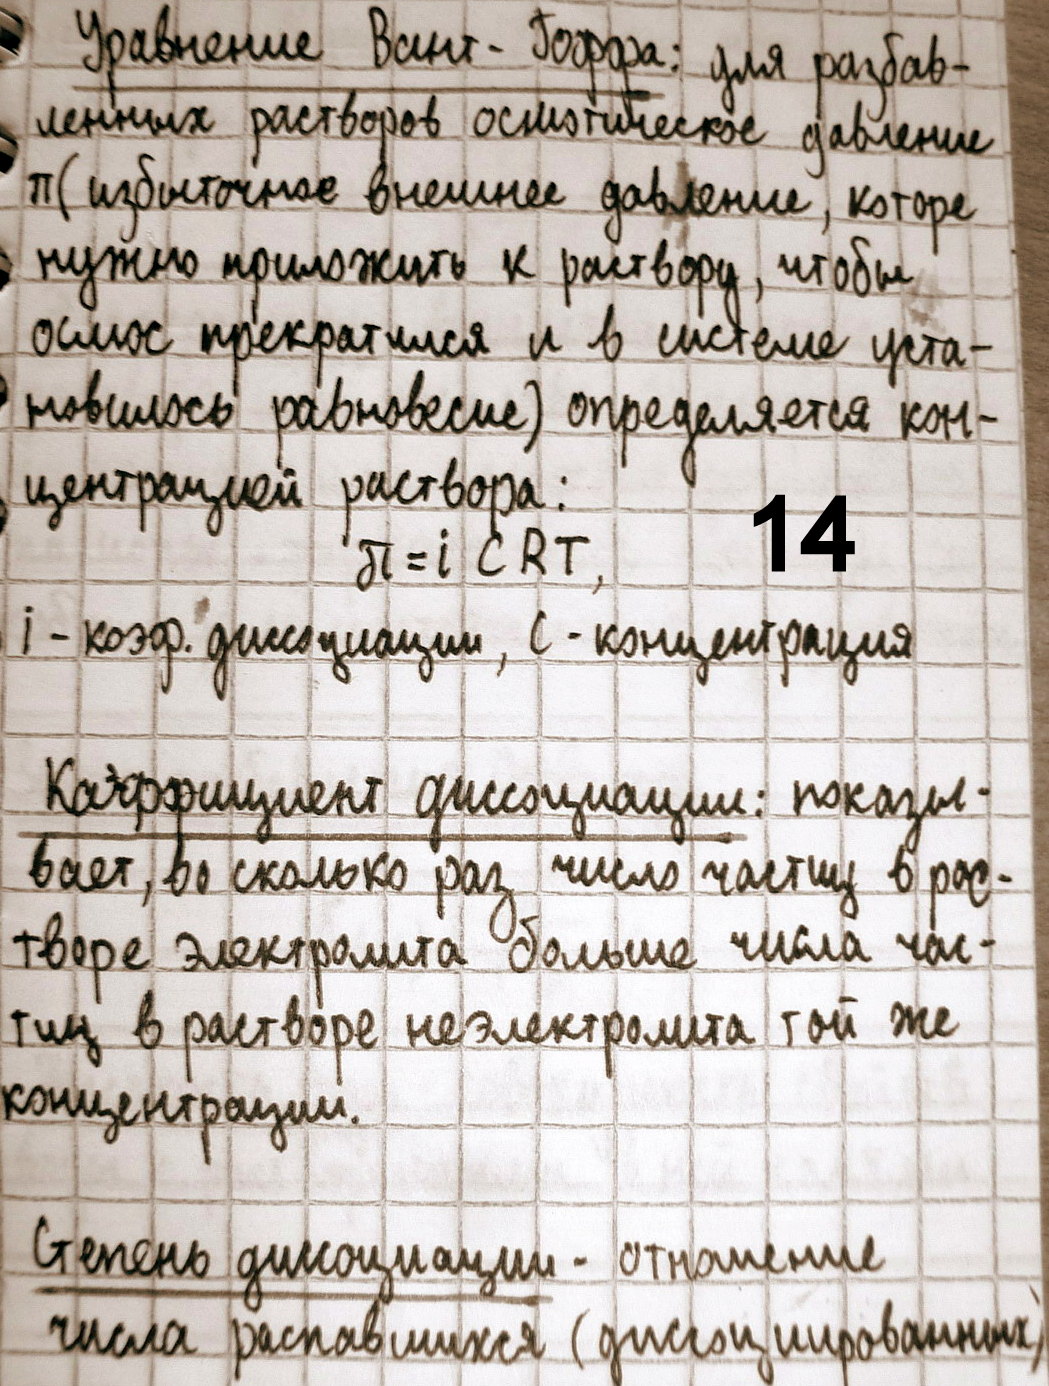 Уравнение Вант-Гоффа: для разбав-
ленных растворов осмотическое давление
π( избыточное внешнее давление, которе
нужно приложить к раствору, чтобы
осмос прекратился и в системе уста-
новилось равновесие) определяется кон-
центрацией раствора:
π = i C R T,
14
i - коэф. диссоциации, C - концентрация
Коэффициент диссоциации: показы-
вает, во сколько раз число частиц в рас-
творе электролита больше числа час-
тиц в растворе неэлектролита той же
концентрации.
Степень диссоциации - отношение
числа распавшихся (диссоциированных)